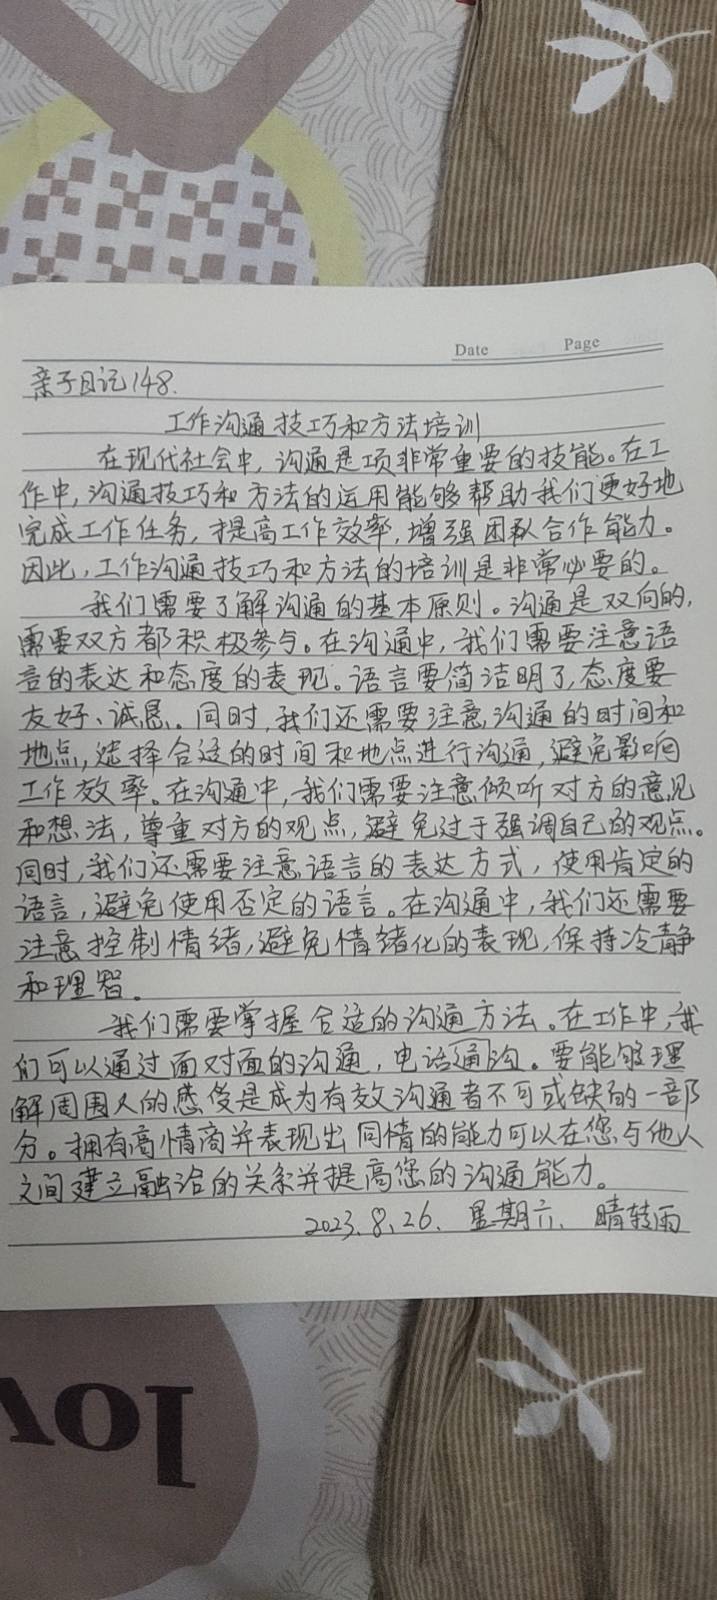 Date Page
亲子日记148.
工作沟通技巧和方法培训
在现代社会中,沟通是项非常重要的技能。在工
作中,沟通技巧和方法的运用能够帮助我们更好地
完成工作任务,提高工作效率,增强团队合作能力。
因此,工作沟通技巧和方法的培训是非常必要的。
我们需要了解沟通的基本原则。沟通是双向的,
需要双方都积极参与。在沟通中,我们需要注意语
言的表达和态度的表现。语言要简洁明了,态度要
友好、诚恳。同时,我们还需要注意沟通的时间和
地点,选择合适的时间和地点进行沟通,避免影响
工作效率。在沟通中,我们需要注意倾听对方的意见
和想法,尊重对方的观点,避免过于强调自己的观点。
同时,我们还需要注意语言的表达方式,使用肯定的
语言,避免使用否定的语言。在沟通中,我们还需要
注意控制情绪,避免情绪化的表现,保持冷静
和理智。
我们需要掌握合适的沟通方法。在工作中,我
们可以通过面对面的沟通,电话通沟。要能够理
解周围人的感受是成为有效沟通者不可或缺的一部
分。拥有高情商并表现出同情的能力可以在您与他人
之间建立融洽的关系并提高您的沟通能力。
2023.8.26. 星期六. 晴转雨
Joy